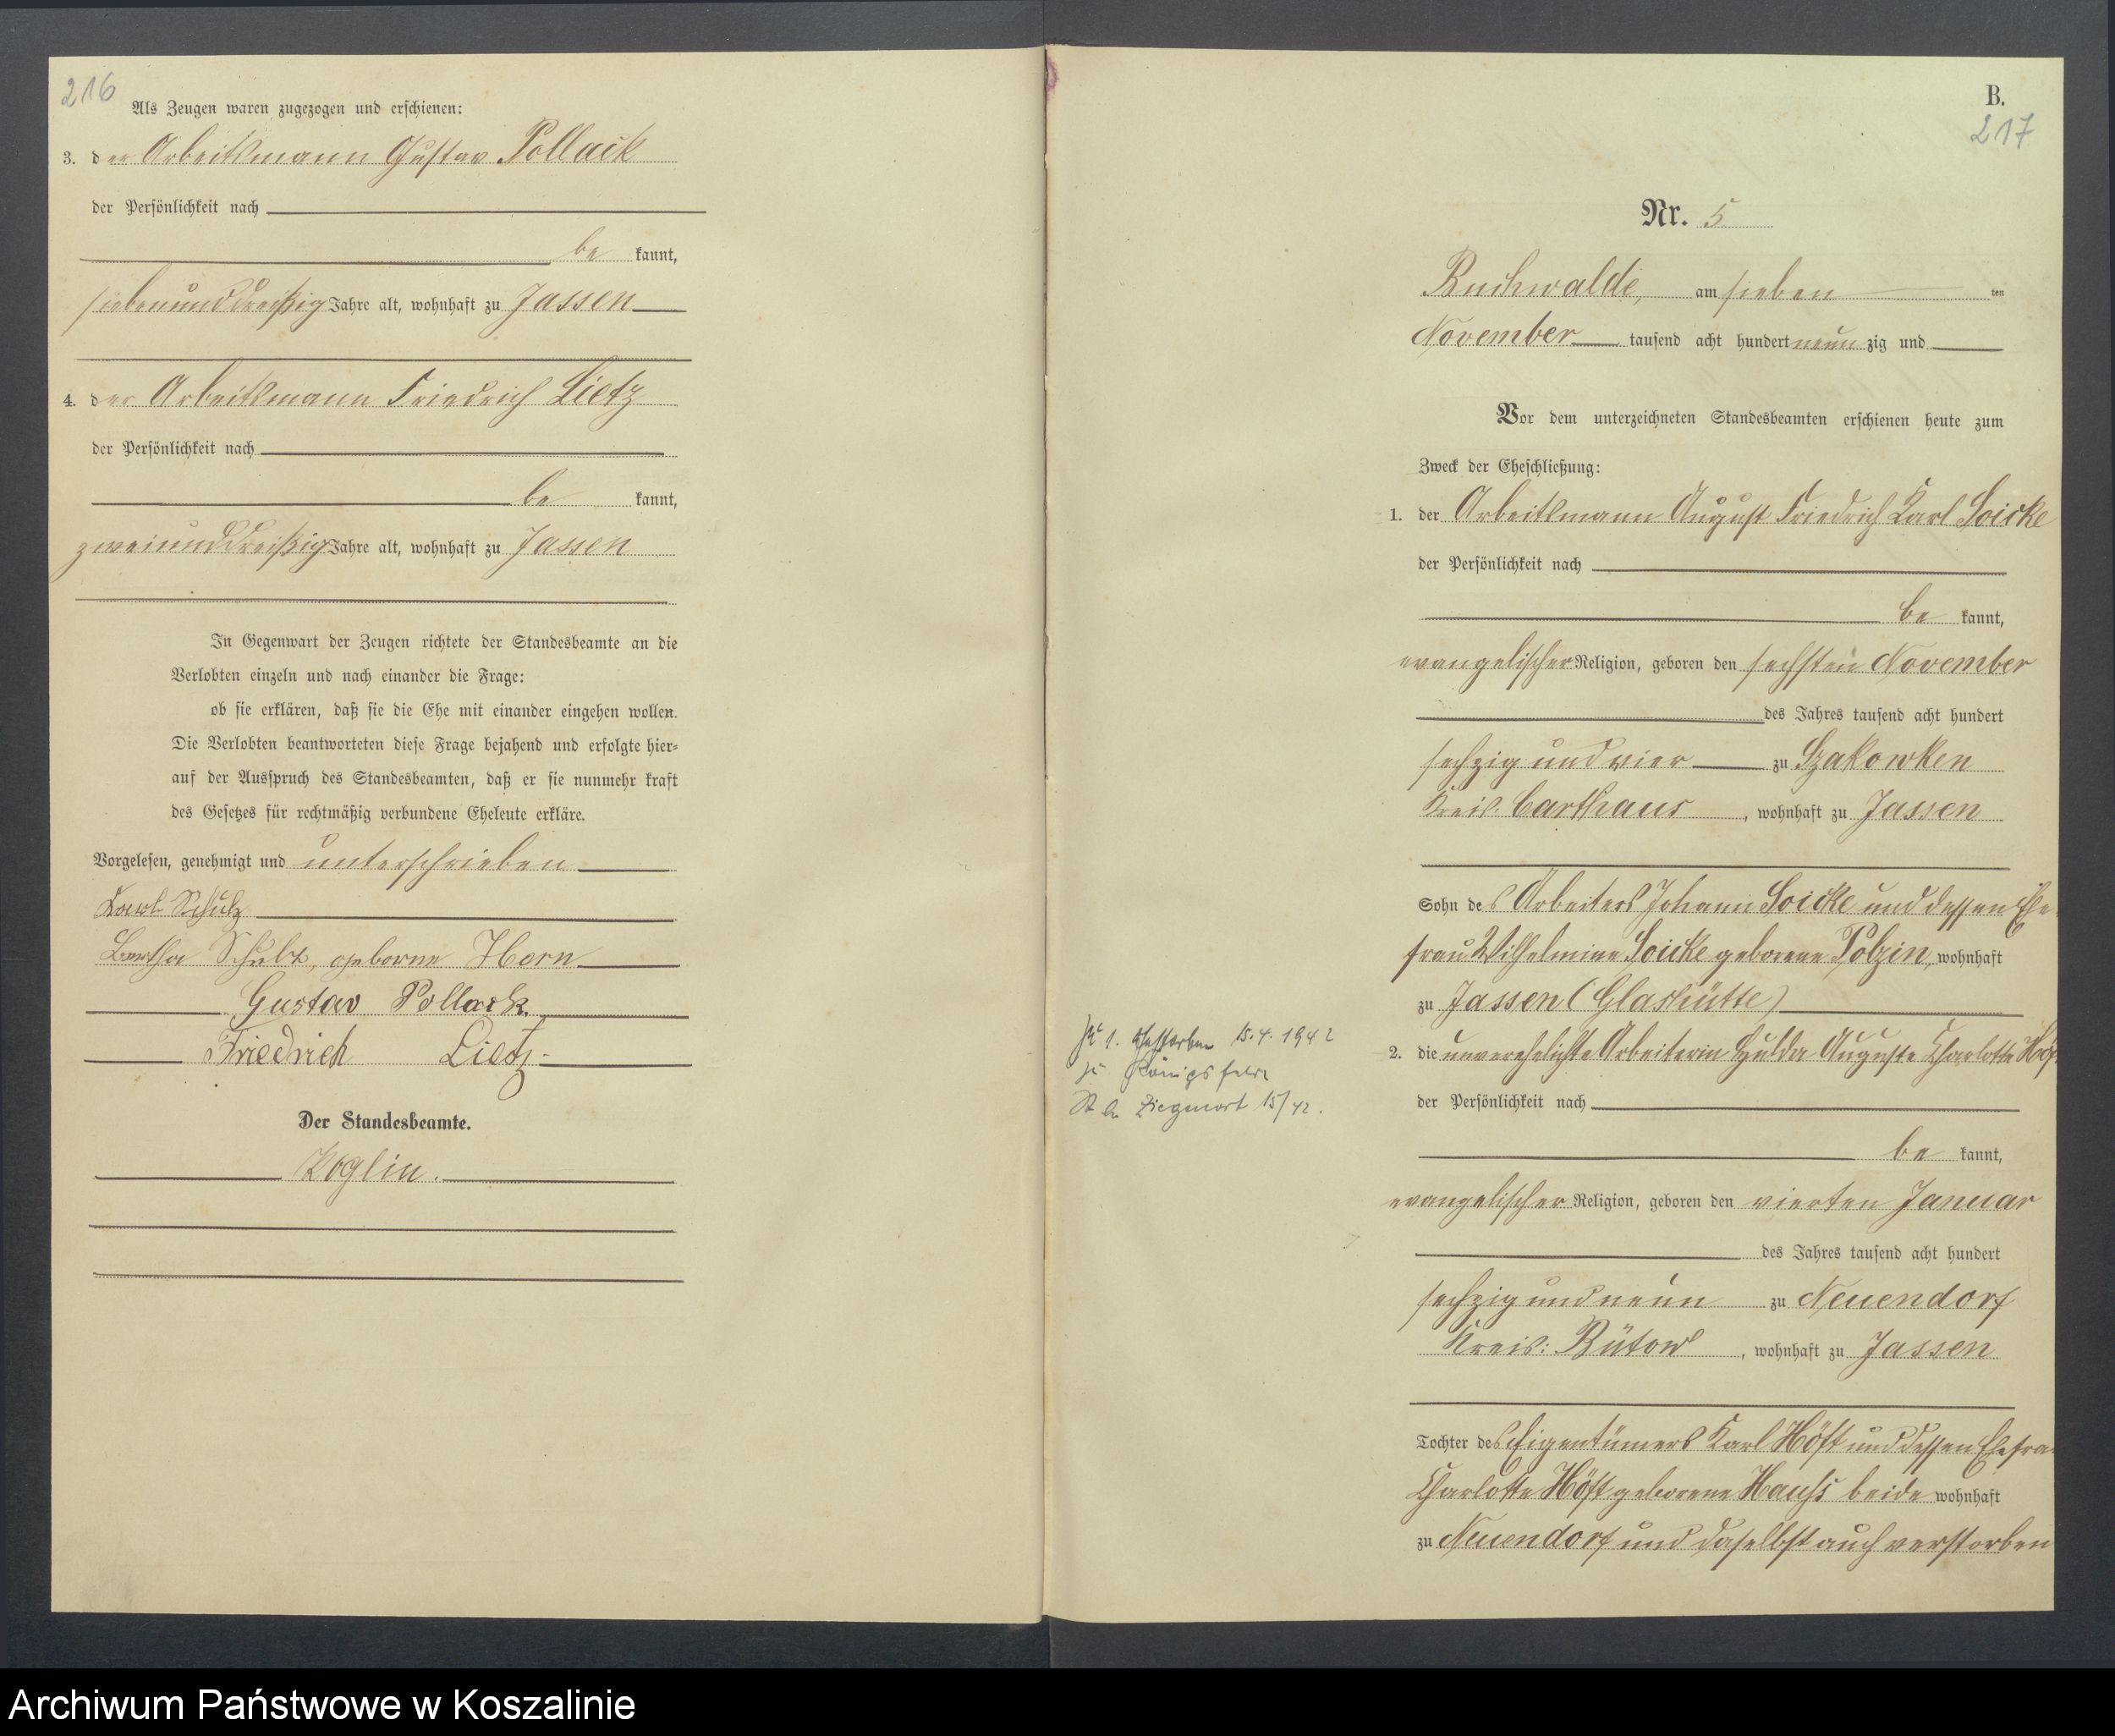 216
Als Zeugen waren zugezogen und erschienen:
3. der Arbeitsmann Gustav Pollack
der Persönlichkeit nach
be kannt,
siebenunddreißig Jahre alt, wohnhaft zu Jassen
4. der Arbeitsmann Friedrich Lietz
der Persönlichkeit nach
be kannt,
zweiunddreißig Jahre alt, wohnhaft zu Jassen
In Gegenwart der Zeugen richtete der Standesbeamte an die
Verlobten einzeln und nach einander die Frage:
ob sie erklären, daß sie die Ehe mit einander eingehen wollen.
Die Verlobten beantworteten diese Frage bejahend und erfolgte hier-
auf der Ausspruch des Standesbeamten, daß er sie nunmehr kraft
des Gesetzes für rechtmäßig verbundene Eheleute erkläre.
Vorgelesen, genehmigt und unterschrieben
Karl Schulz
Bertha Schulz, geborne Horn
Gustav Pollack
Friedrich Lietz
Der Standesbeamte.
Koglin.
B.
217
Nr. 5
Buchwalde, am sieben ten
November tausend acht hundert neun zig und
Vor dem unterzeichneten Standesbeamten erschienen heute zum
Zweck der Eheschließung:
1. der Arbeitsmann August Friedrich Karl Soicke
der Persönlichkeit nach
be kannt,
evangelischer Religion, geboren den sechsten November
des Jahres tausend acht hundert
sechzig und vier zu Szakowken
Kreis Carthaus, wohnhaft zu Jassen
Sohn des Arbeiters Johann Soicke und dessen Ehe-
frau Wilhelmine Soicke geborene Polzin, wohnhaft
zu Jassen (Glashütte)
Zu 1. Gestorben 15.4.1942
zu Königsfelde
St. A. 15/42.
2. die unverehelichte Arbeiterin Hulda Auguste Charlotte Höf
der Persönlichkeit nach
be kannt,
evangelischer Religion, geboren den vierten Januar
des Jahres tausend acht hundert
sechzig und neun zu Neuendorf
Kreis: Bütow, wohnhaft zu Jassen
Tochter des Eigentümers Karl Höft und dessen Ehefra
Charlotte Höft geborene Hauss beide wohnhaft
zu Neuendorf und daselbst auch verstorben
Archiwum Państwowe w Koszalinie